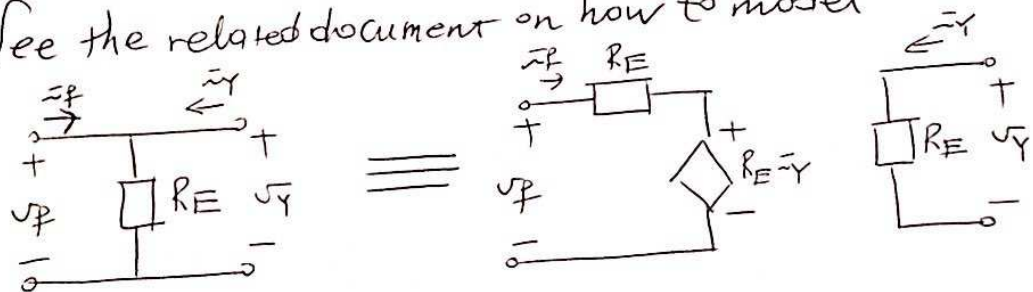 See the related document on how to model
if iY if RE iY
+ + + + +
vf RE vY vf RE iY RE vY
− − − − −